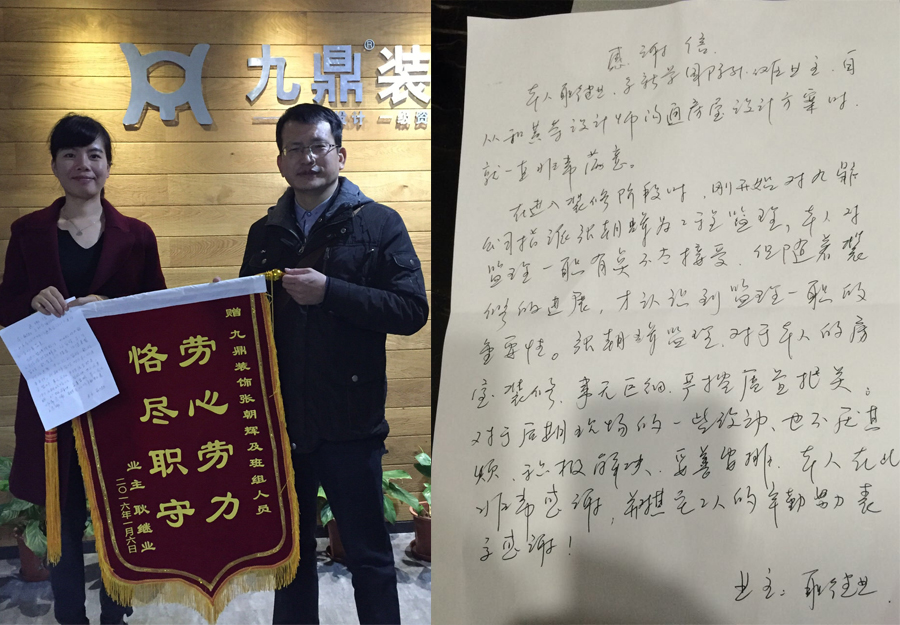 九鼎®装
赠 九鼎装饰张朝辉及班组人员
劳心劳力
恪尽职守
业主 耿继业
二〇一六年一月六日
感谢信
本人耿继业,
业主,自
从和黄芩设计师沟通房屋设计方案时,
就一直非常满意。
在进入装修阶段时,刚开始对九鼎
公司指派张朝辉为工地监理,本人对
监理一职有点不太接受,但随着装
修的进展,才认识到监理一职的
重要性。张朝辉监理,对于本人的房
室装修,事无巨细,严把质量把关。
对于后期现场的一些改动,也不厌其
烦,积极解决,妥善安排,本人在此
非常感谢,并携工人的辛勤努力表
示感谢!
业主:耿继业